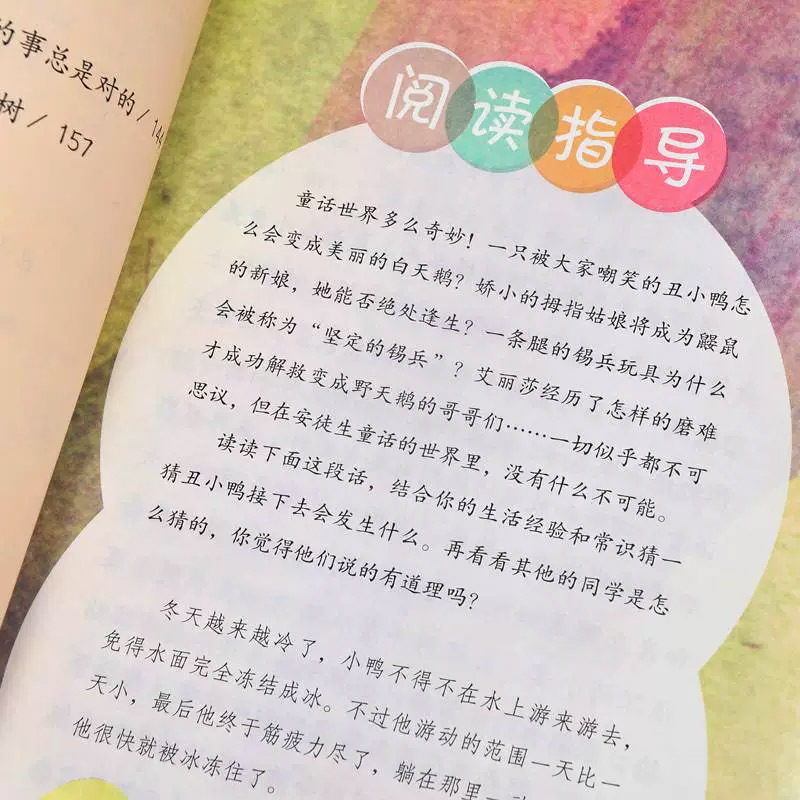 的事总是对的 / 144
树 / 157
阅读指导
童话世界多么奇妙！一只被大家嘲笑的丑小鸭怎
么会变成美丽的白天鹅？娇小的拇指姑娘将成为鼹鼠
的新娘，她能否绝处逢生？一条腿的锡兵玩具为什么
会被称为“坚定的锡兵”？艾丽莎经历了怎样的磨难
才成功解救变成野天鹅的哥哥们……一切似乎都不可
思议，但在安徒生童话的世界里，没有什么不可能。
读读下面这段话，结合你的生活经验和常识猜一
猜丑小鸭接下去会发生什么。再看看其他的同学是怎
么猜的，你觉得他们说的有道理吗？
冬天越来越冷了，小鸭不得不在水上游来游去，
免得水面完全冻结成冰。不过他游动的范围一天比一
天小，最后他终于筋疲力尽了，躺在那里一动
他很快就被冰冻住了。